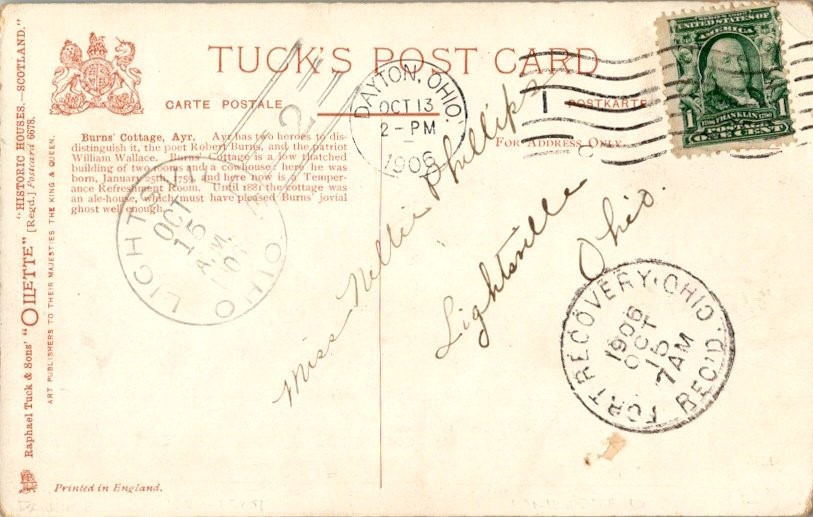 TUCK'S POST CARD
CARTE POSTALE
POSTKARTE
FOR ADDRESS ONLY.
Burns' Cottage, Ayr. Ayr has two heroes to dis-
distinguish it, the poet Robert Burns, and the patriot
William Wallace. Burns' Cottage is a low thatched
building of two rooms and a cowhouse: here he was
born, January 25th, 1759, and here now is a Temper-
ance Refreshment Room. Until 1881 the cottage was
an ale-house, which must have pleased Burns' jovial
ghost well enough.
"HISTORIC HOUSES.—SCOTLAND."
[Regd.] Postcard 6678.
Raphael Tuck & Sons' "OILETTE"
ART PUBLISHERS TO THEIR MAJESTIES THE KING & QUEEN.
Printed in England.
DAYTON, OHIO.
OCT 13
2-PM
1906
1
UNITED STATES OF
AMERICA
FRANKLIN
1 1
POSTAGE
ONE CENT
2
OHIO
OCT
15
A.M.
Miss Nellie Phillips
Lightsville
Ohio.
FORT RECOVERY, OHIO.
1906
OCT
15
7AM
REC'D.